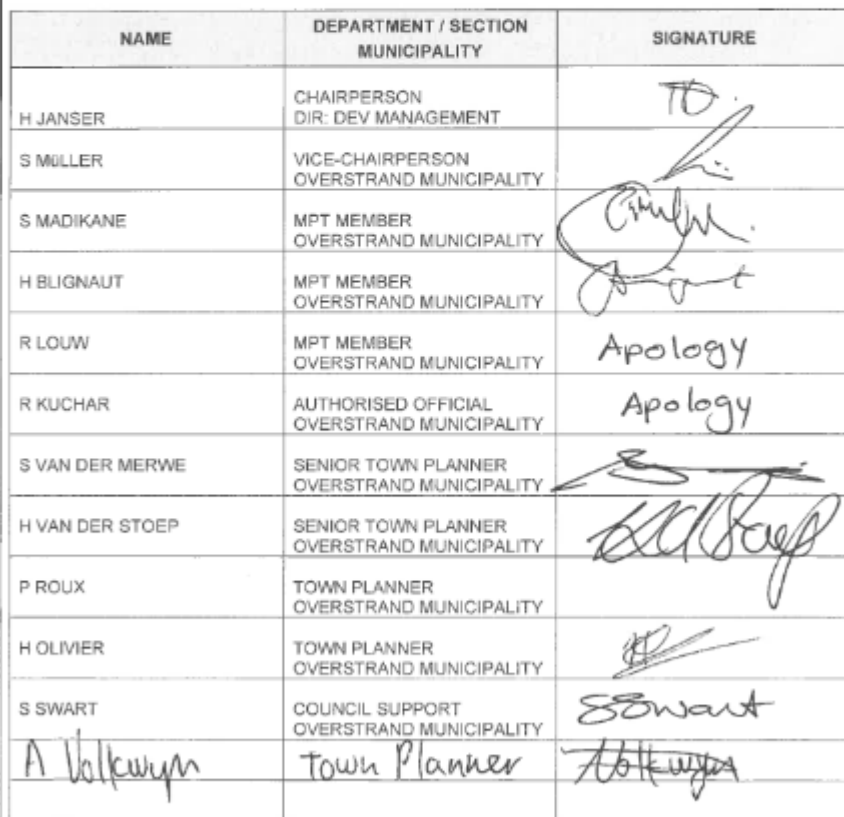 NAME DEPARTMENT / SECTION MUNICIPALITY SIGNATURE
H JANSER CHAIRPERSON
DIR: DEV MANAGEMENT
S MüLLER VICE-CHAIRPERSON
OVERSTRAND MUNICIPALITY
S MADIKANE MPT MEMBER
OVERSTRAND MUNICIPALITY
H BLIGNAUT MPT MEMBER
OVERSTRAND MUNICIPALITY
R LOUW MPT MEMBER Apology
OVERSTRAND MUNICIPALITY
R KUCHAR AUTHORISED OFFICIAL Apology
OVERSTRAND MUNICIPALITY
S VAN DER MERWE SENIOR TOWN PLANNER
OVERSTRAND MUNICIPALITY
H VAN DER STOEP SENIOR TOWN PLANNER
OVERSTRAND MUNICIPALITY
P ROUX TOWN PLANNER
OVERSTRAND MUNICIPALITY
H OLIVIER TOWN PLANNER
OVERSTRAND MUNICIPALITY
S SWART COUNCIL SUPPORT SSwart
OVERSTRAND MUNICIPALITY
A Volkwyn Town Planner AVolkwyn